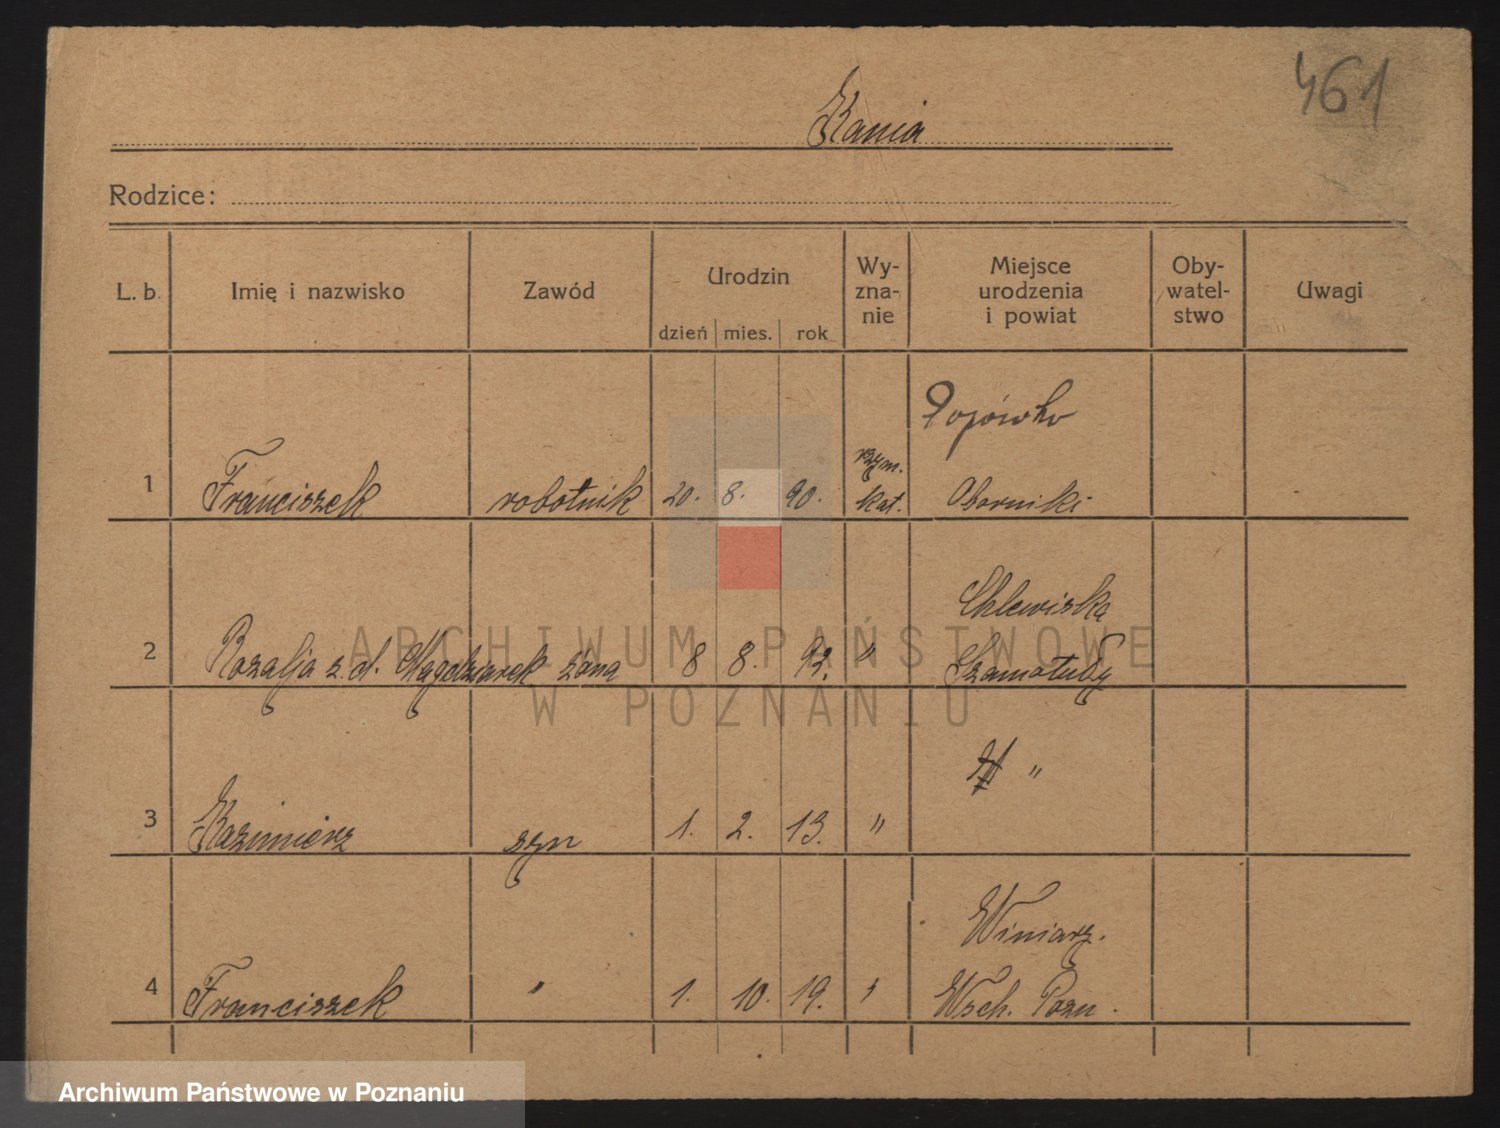 461
Kania
Rodzice:
L. b. Imię i nazwisko Zawód Urodzin Wy-zna-nie Miejsce urodzenia i powiat Oby-watel-stwo Uwagi
dzień mies. rok
Popówko
rzym.
1 Franciszek robotnik 20. 8. 90. kat. Oborniki
Chlewiska
2 Rozalja z. d. Magdziarek żona 8 8. 92. " Szamotuły
"
3 Kazimierz syn 1. 2. 13. "
Winiary.
4 Franciszek " 1. 10. 19. " Wsch. Pozn.
ARCHIWUM PAŃSTWOWE
W POZNANIU
Archiwum Państwowe w Poznaniu